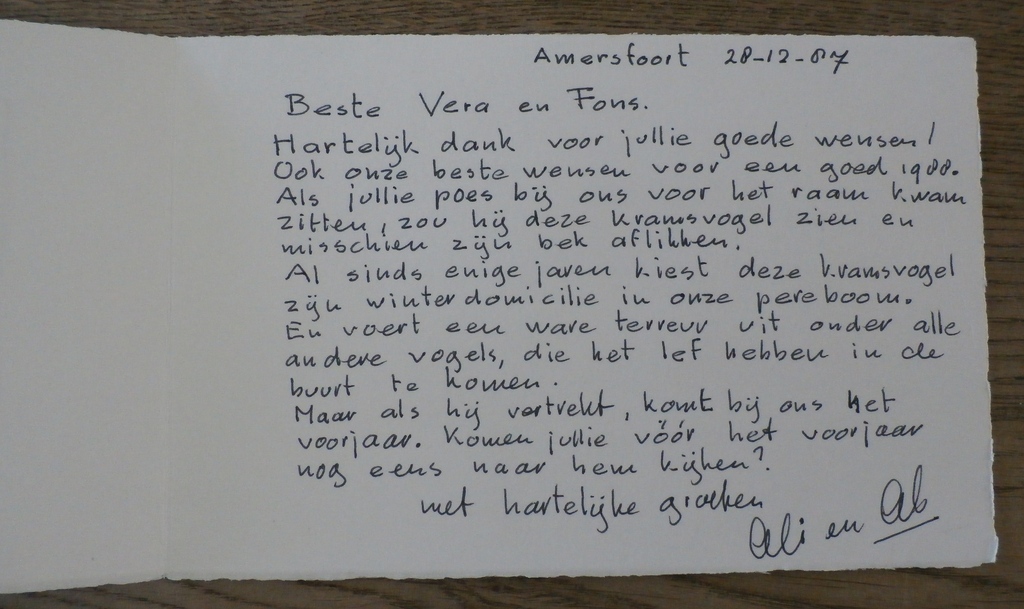 Amersfoort 28-12-87
Beste Vera en Fons.
Hartelijk dank voor jullie goede wensen!
Ook onze beste wensen voor een goed 1988.
Als jullie poes bij ons voor het raam kwam
zitten, zou hij deze kramsvogel zien en
misschien zijn bek aflikken.
Al sinds enige jaren kiest deze kramsvogel
zijn winterdomicilie in onze pereboom.
En voert een ware terreur uit onder alle
andere vogels, die het lef hebben in de
buurt te komen.
Maar als hij vertrekt, komt bij ons het
voorjaar. Komen jullie vóór het voorjaar
nog eens naar hem kijken?
met hartelijke groeten
Ali en Ab